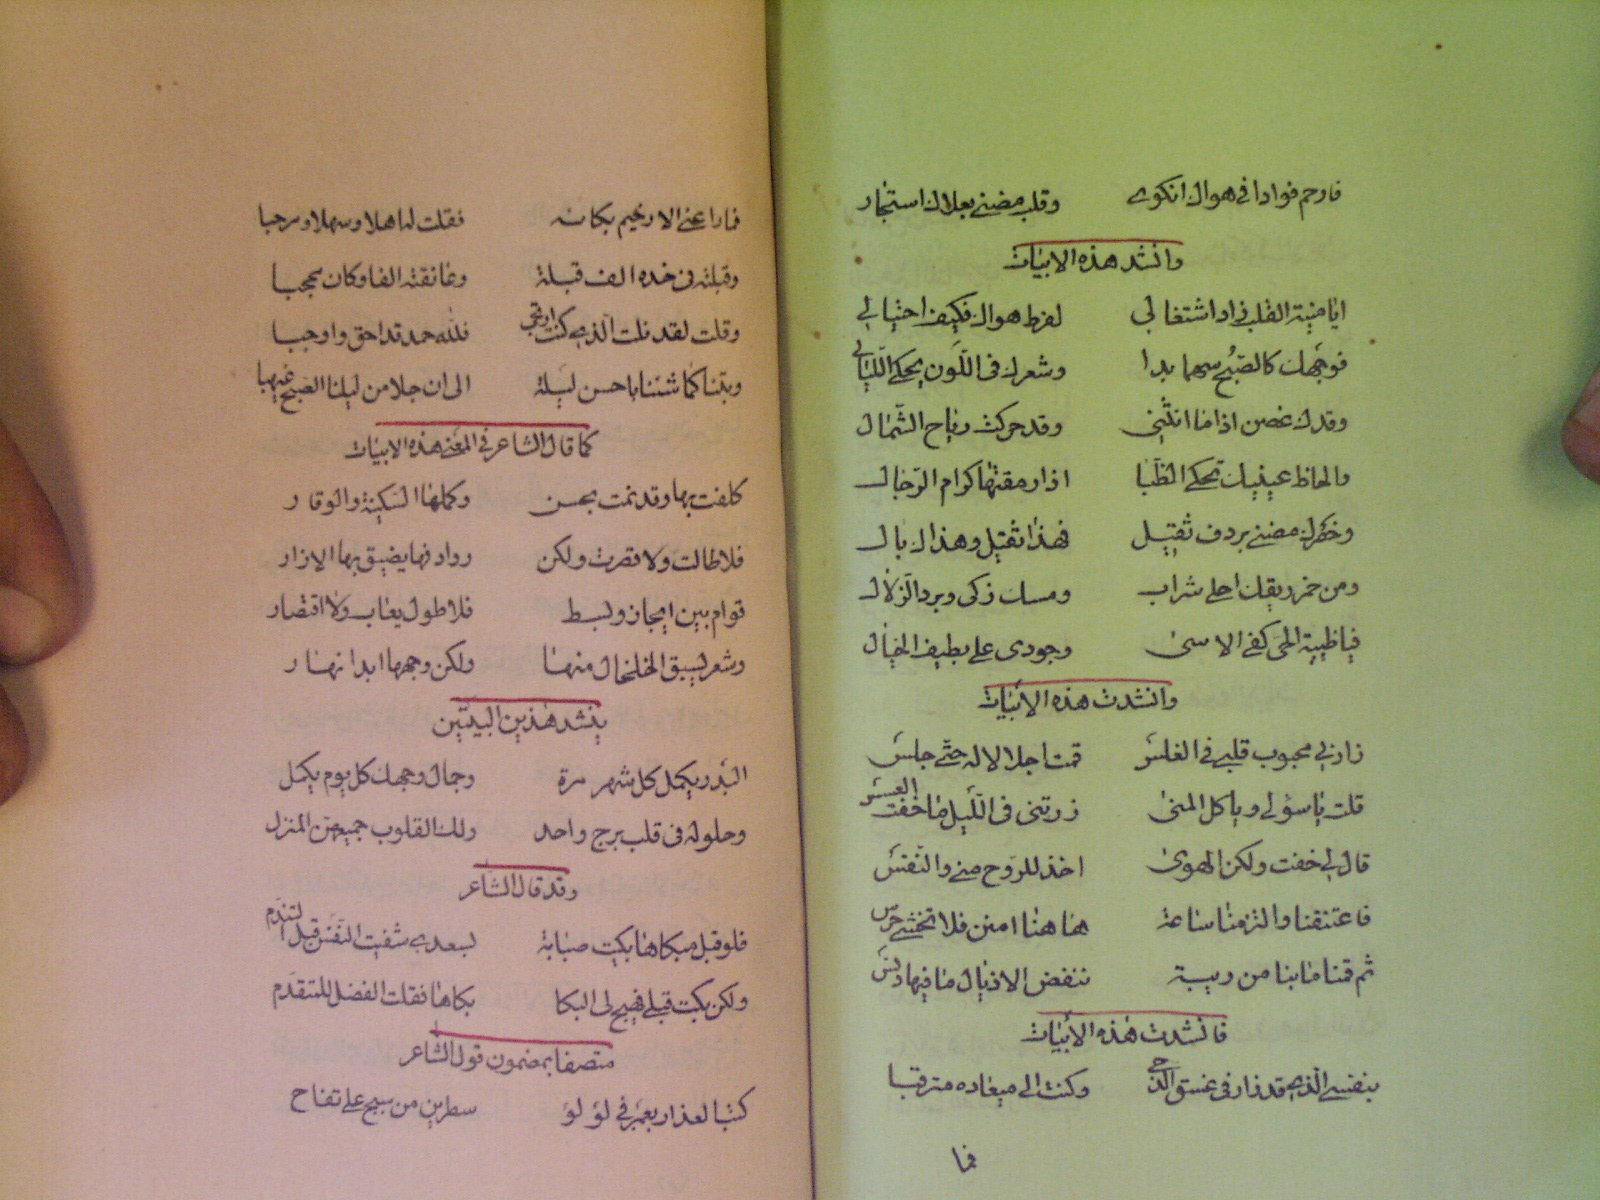 فارحم فوادا في هواك انكوى وقلب مضنى بعلاك استجار
وانشد هذه الابيات
ايا منية القلب زاد اشتغالي لفرط هواك فكيف احتيالي
فوجهك كالصبح مهما بدا وشعرك في اللون يحكي الليالي
وقدك غصن اذا ما انثنى وقد حركت رياح الشمال
والحاظ عينيك تحكي الظبا اذا رمقتها كرام الرجال
وخصرك مضنى بردف ثقيل فهذا ثقيل وهذاك بال
ومن خمر ريقك احلى شراب ومسك زكي وبرد الزلال
فيا ظبية الحي كفي الاسى وجودي علي بطيف الخيال
وانشدت هذه الابيات
زارني محبوب قلبي في الغلس قمت اجلالا له حتى جلس
قلت يا سؤلي ويا كل المنى زرتني في الليل ما خفت العسس
قال لي خفت ولكن الهوى اخذ للروح مني والنفس
فاعتنقنا والتزمنا ساعة هاهنا امن فلا تخشى حرس
ثم قمنا ما بنا من ريبة ننفض الاذيال ما فيها دنس
فانشدت هذه الابيات
بنفسي الذي قد زار في غسق الدجى وكنت الى ميعاده مترقبا
فما
فما راعني الا رخيم بكائه فقلت له اهلا وسهلا ومرحبا
وقبلته في خده الف قبلة وعانقته الفا وكان محجبا
وقلت لقد نلت الذي كنت ارتجي فلله حمد قد احق واوجبا
وبتنا كما شئنا باحسن ليلة الى ان جلا من ليلنا الصبح غيهبا
كما قال الشاعر في المعنى هذه الابيات
كلفت بها وقد تمت بحسن وكملها السكينة والوقار
فلا طالت ولا قصرت ولكن روادفها يضيق بها الازار
قوام بين ايجاز وبسط فلا طول يعاب ولا اقتصار
وشعر يسبق الخلخال منها ولكن وجهها ابدا نهار
ينشد هذين البيتين
البدر يكمل كل شهر مرة وجمال وجهك كل يوم يكمل
وحلوله في قلب برج واحد ولك القلوب جميعهن المنزل
وقد قال الشاعر
فلو قبل مبكاها بكيت صبابة لسعدى شفيت النفس قبل التندم
ولكن بكت قبلي فهيج لي البكا بكاها فقلت الفضل للمتقدم
متصفا بمضمون قول الشاعر
كتب العذار بعنبر في لؤلؤ سطرين من سبج على تفاح